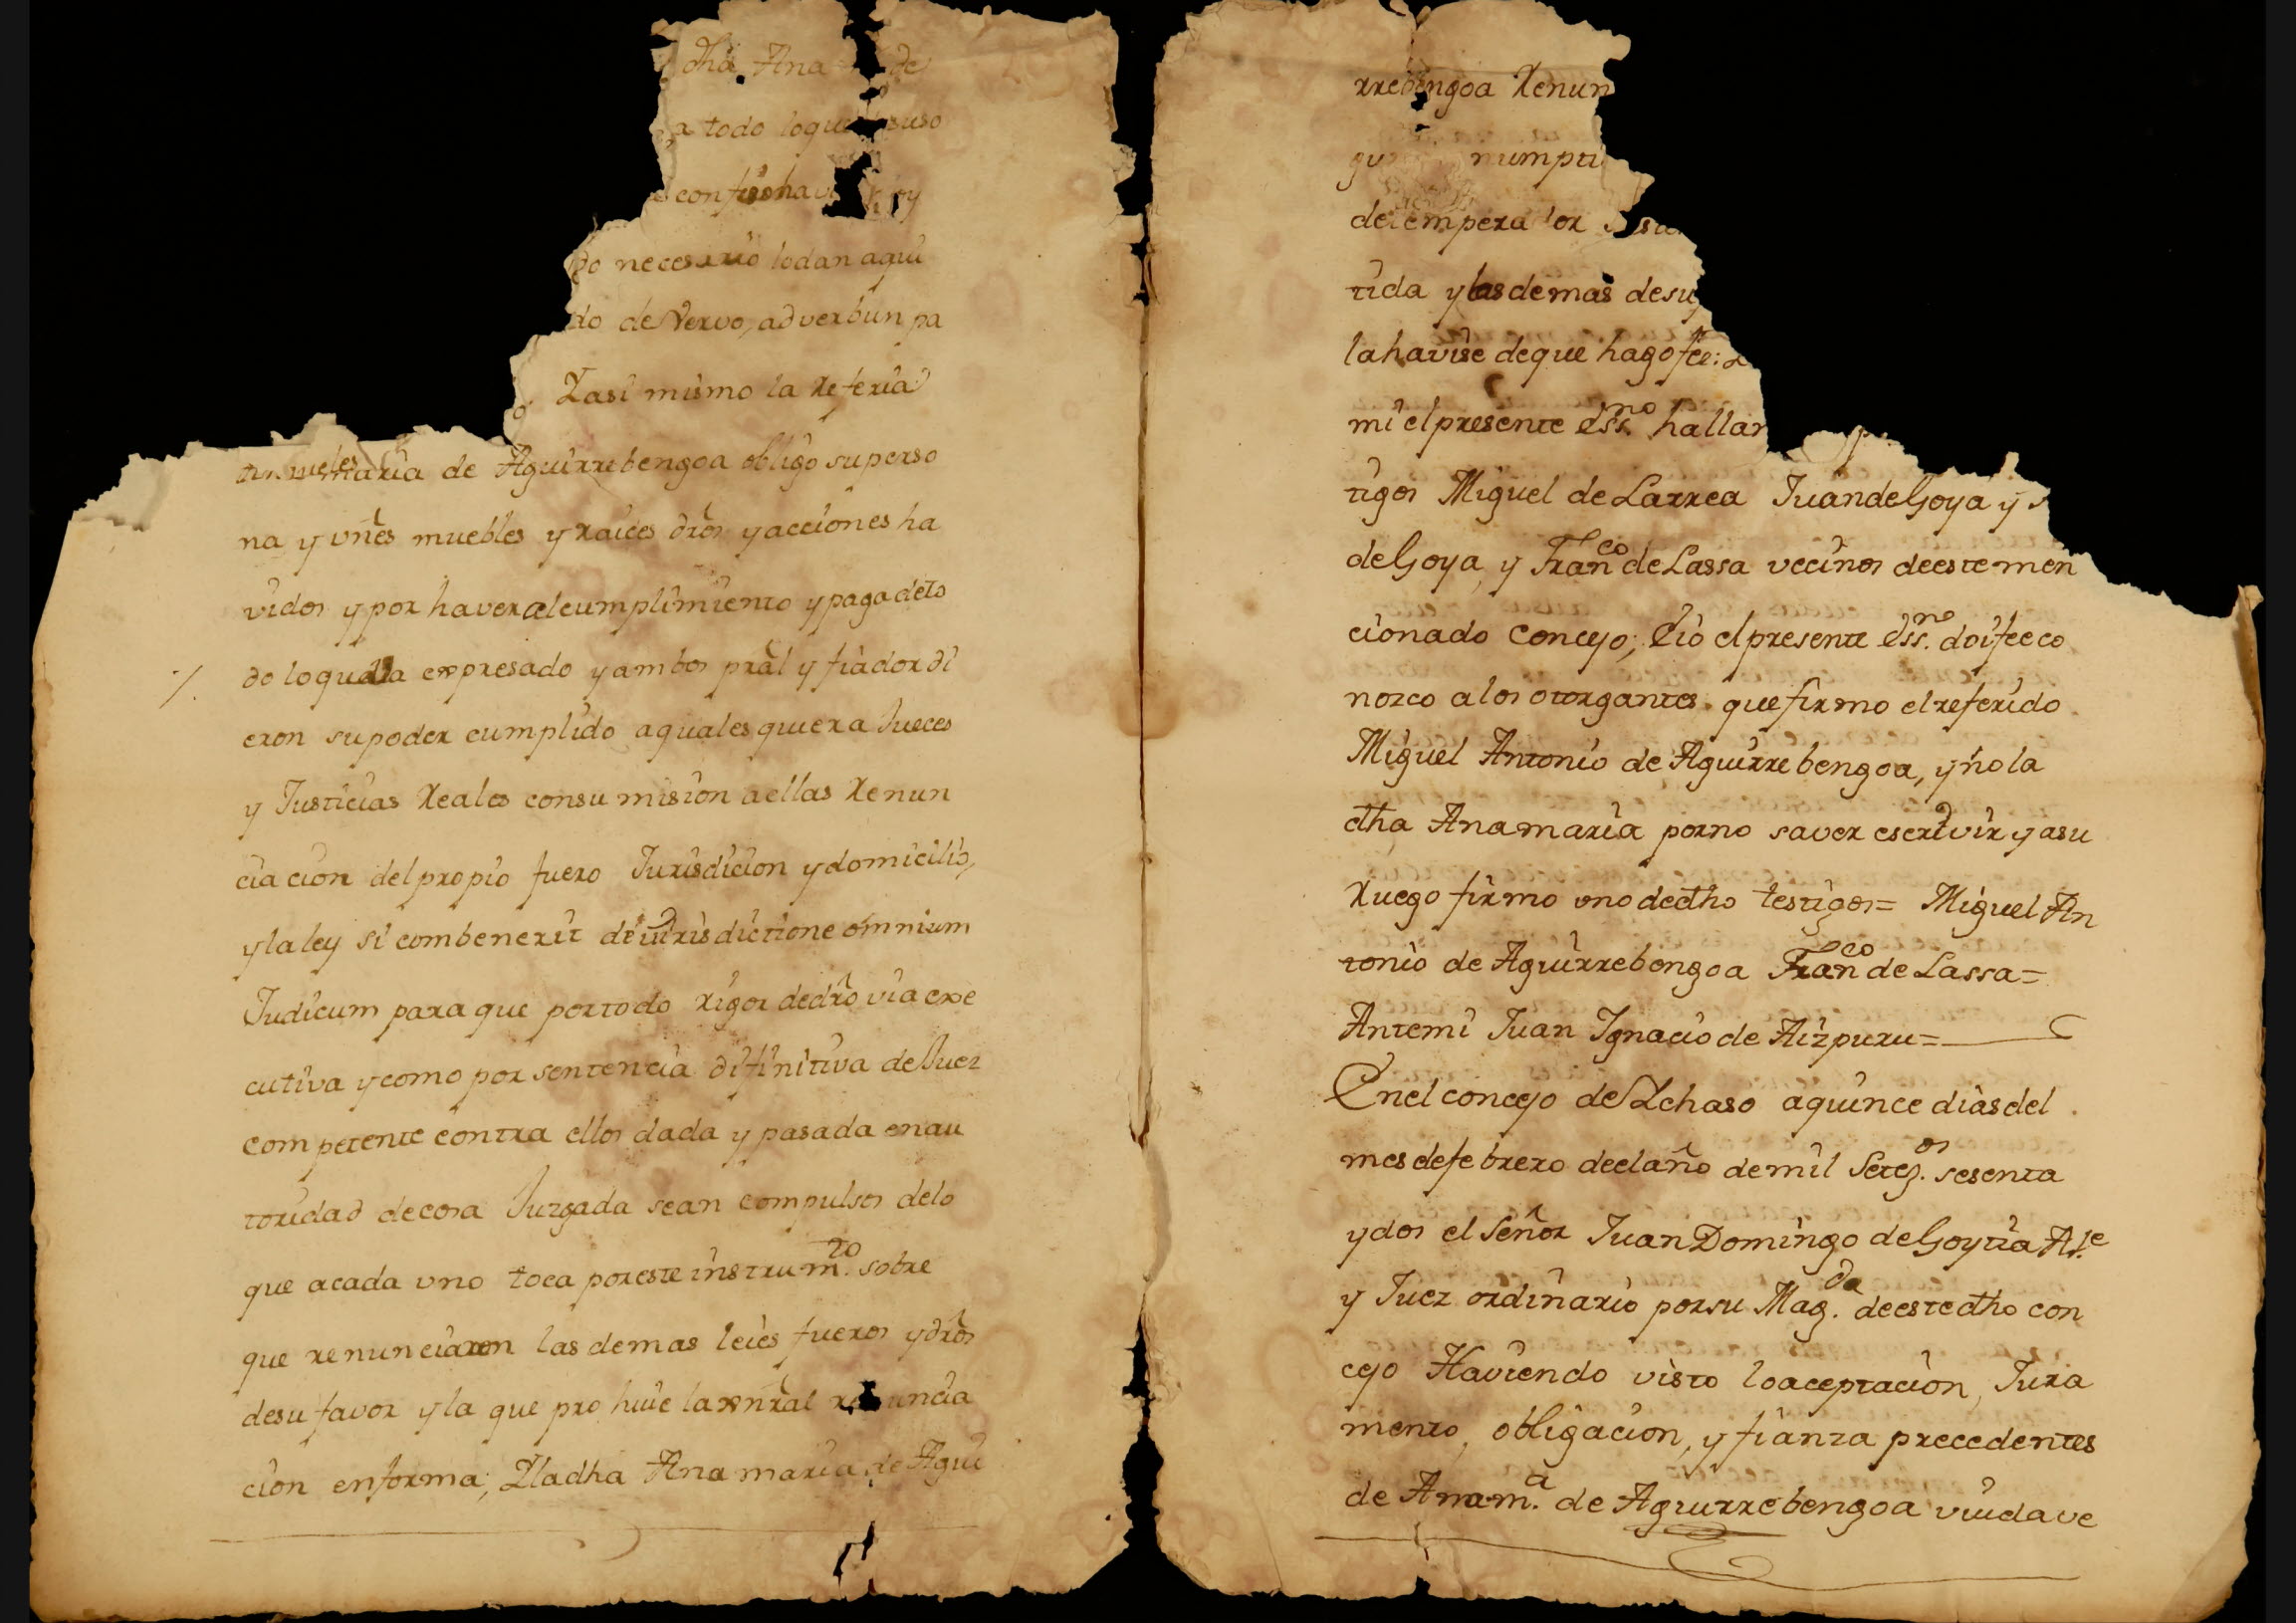 dha Ana de
a todo lo que suso
confiesa hav
do necesario lo dan aqui
do de Vervo, ad verbun pa
Y asi mismo la referia
Maria de Aguirrebengoa obligo su perso
na y vñes muebles y raices dros y acciones ha
vidos y por haver al cumplimiento y paga deto
do lo que ba expresado y ambos pral y fiador di
eron su poder cumplido a quales quiera Jueces
y Justicias Reales con su mision a ellas Renun
ciacion del propio fuero Jurisdicion y domicilio,
y la ley si combenerit de iurisdictione omnium
Judicum para que por todo rigor de dro via exe
cutiva y como por sentencia difinitiva de Juez
competente contra ellos dada y pasada en au
toridad de cosa Juzgada sean compulsos de lo
que a cada uno toca por este instrum.to sobre
que renunciaron las demas leies fueros y dros
de su favor y la que prohive la xnral renuncia
cion en forma; Y la dha Ana maria de Agui
rrebengoa Renun
numpti
del emperador
tida y las demas de su
la havise de que hago fee:
mi el presente Ess.no hallan
tigos Miguel de Larrea Juan de Goya y
de Goya, y Fran.co de Lassa vecinos de este men
cionado concejo; E io el presente Ess.no doi fee co
nozco a los otorgantes que firmo el referido
Miguel Antonio de Aguirrebengoa, y no la
dha Ana maria por no saver escrivir y a su
Ruego firmo uno de dho testigos = Miguel An
tonio de Aguirrebengoa Fran.co de Lassa =
Antemi Juan Ignacio de Aizpuru =
En el concejo de Ychaso a quince dias del
mes de febrero de el año de mil Setez.os sesenta
y dos el Señor Juan Domingo de Goytia Al.e
y Juez ordinario por su Mag.da de este dho con
cejo Haviendo visto lo aceptacion, Jura
mento, obligacion, y fianza precedentes
de Ana m.a de Aguirrebengoa viuda ve